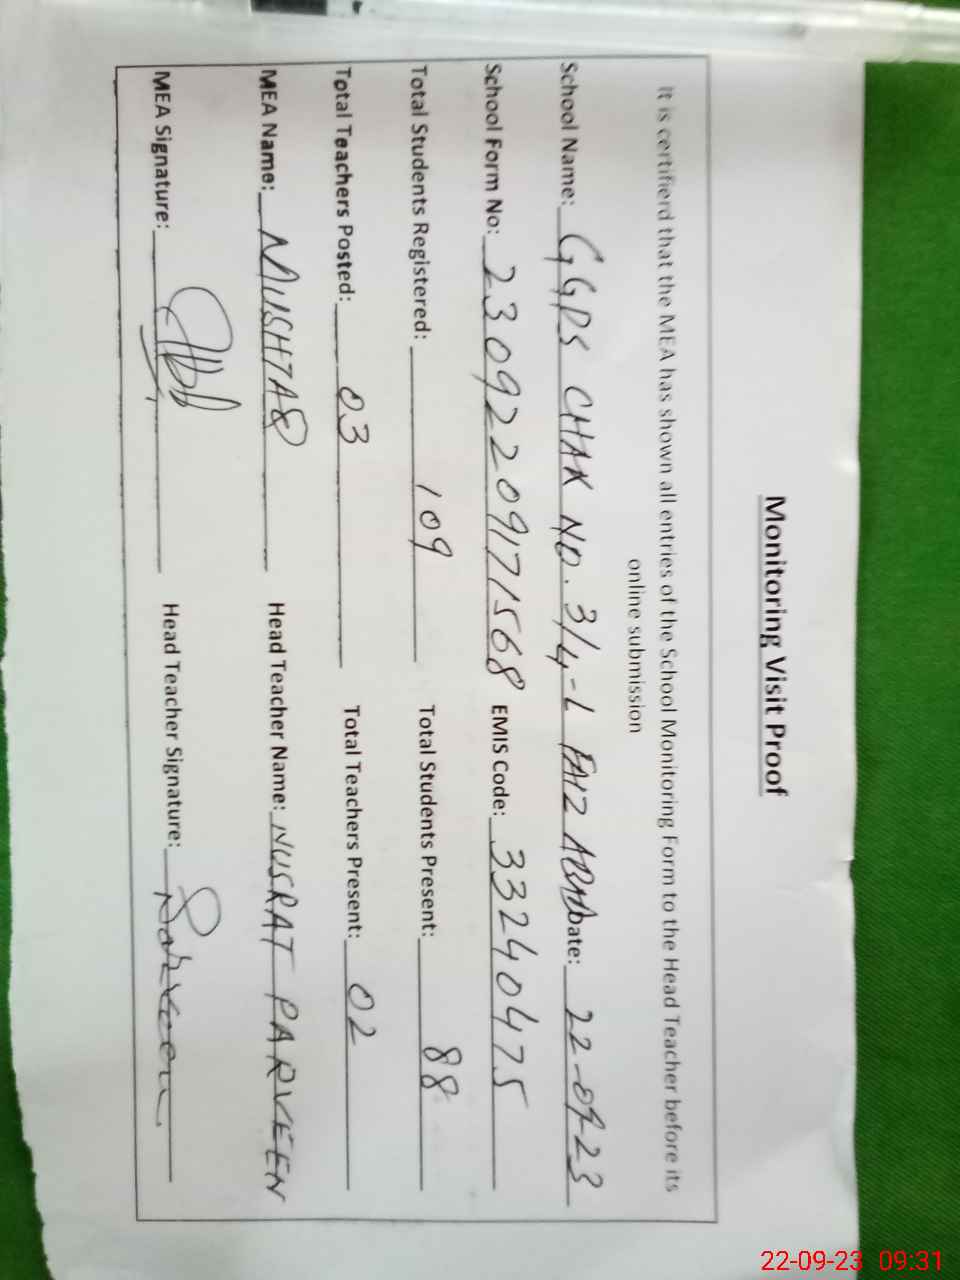 Monitoring Visit Proof
It is certifierd that the MEA has shown all entries of the School Monitoring Form to the Head Teacher before its
online submission
School Name: GGPS CHAK NO. 3/4-L FAIZ ABAD Date: 22-09-23
School Form No: 23092209171568 EMIS Code: 33240475
Total Students Registered: 109 Total Students Present: 88
Total Teachers Posted: 03 Total Teachers Present: 02
MEA Name: MUSHTAQ Head Teacher Name: NUSRAT PARVEEN
MEA Signature: Head Teacher Signature: Parveen
22-09-23 09:31